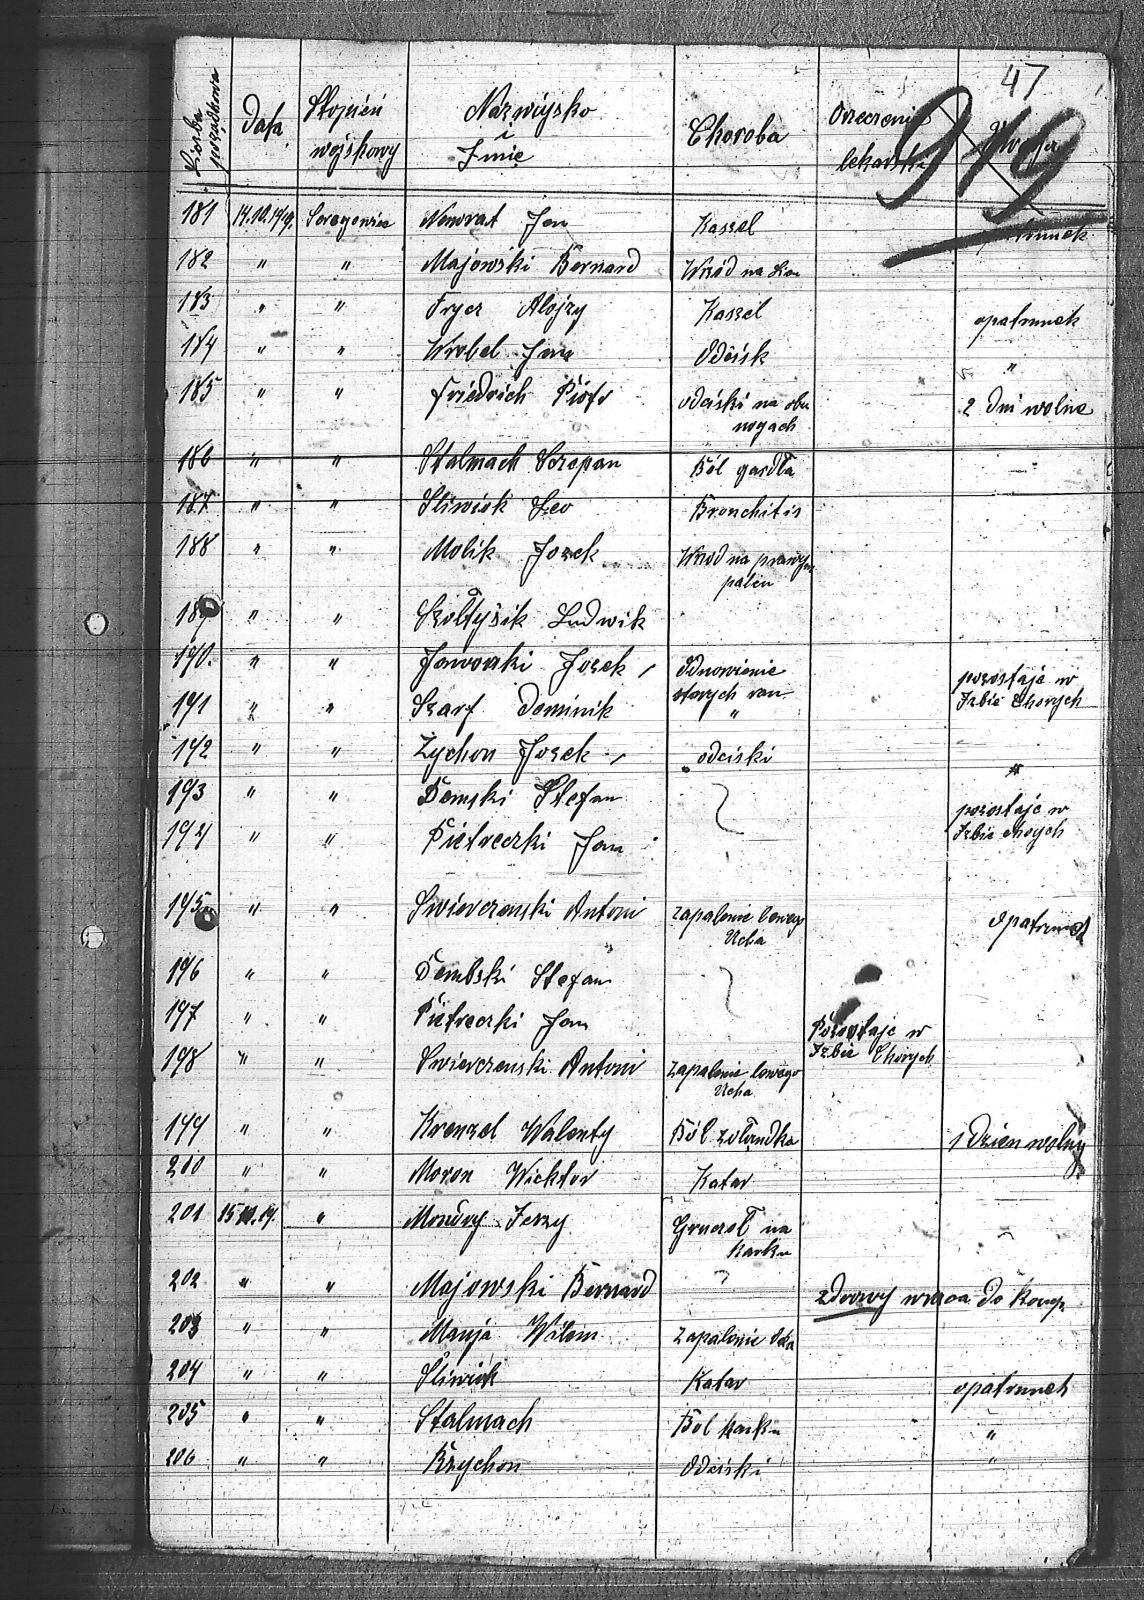 47
919
Liczba porządkowa Data. Stopień wojskowy Nazwiysko Imie Choroba Orzeczenie lekarskie
181 14.10.1919. Szeregowiec Nowrat Jan Kaszel opatrunek
182 " " Majowski Bernard Wrzód na
183 " " Fryer Alojzy Kaszel opatrunek
184 " " Wrobel Jan Odcisk "
185 " " Friedrich Piotr odciski na obu nogach 2 dni wolne
186 " " Stalmach Szczepan Ból gardła
187 " " Sliwiok Leo Bronchitis
188 " " Molik Jozek Wrzod na prawym palcu
189 " " Szołtyśik Ludwik
190. " " Jaworski Jozek Odnowienie starych ran pozostaje w Izbie Chorych
191 " " Szarf Dominik "
192 " " Zychon Jozek odciski "
193 " " Demski Stefan pozostaje w Izbie chorych
194 " " Pietreczki Jan
195 " " Swierczenski Antoni Zapalenie lewego Ucha opatrunek
196 " " Dembski Stefan
197 " " Pietreczki Jan Pozostaje w Izbie Chorych
198 " " Swierczenski Antoni Zapalenie lewego Ucha
199 " " Krenzel Walenty Ból zołandka 1 dzien wolny
200 " " Moron Wicktor Katar
201 15 .19. " Mondry Jerzy Gruczoł na karku
202 " " Majowski Bernard zdrowy wraca do Komp.
203 " " Manja Wilem Zapalenie Oka
204 " " Sliwiok Katar opatrunek
205 " " Stalmach Bol karku "
206 " " Krzychon Odciski "